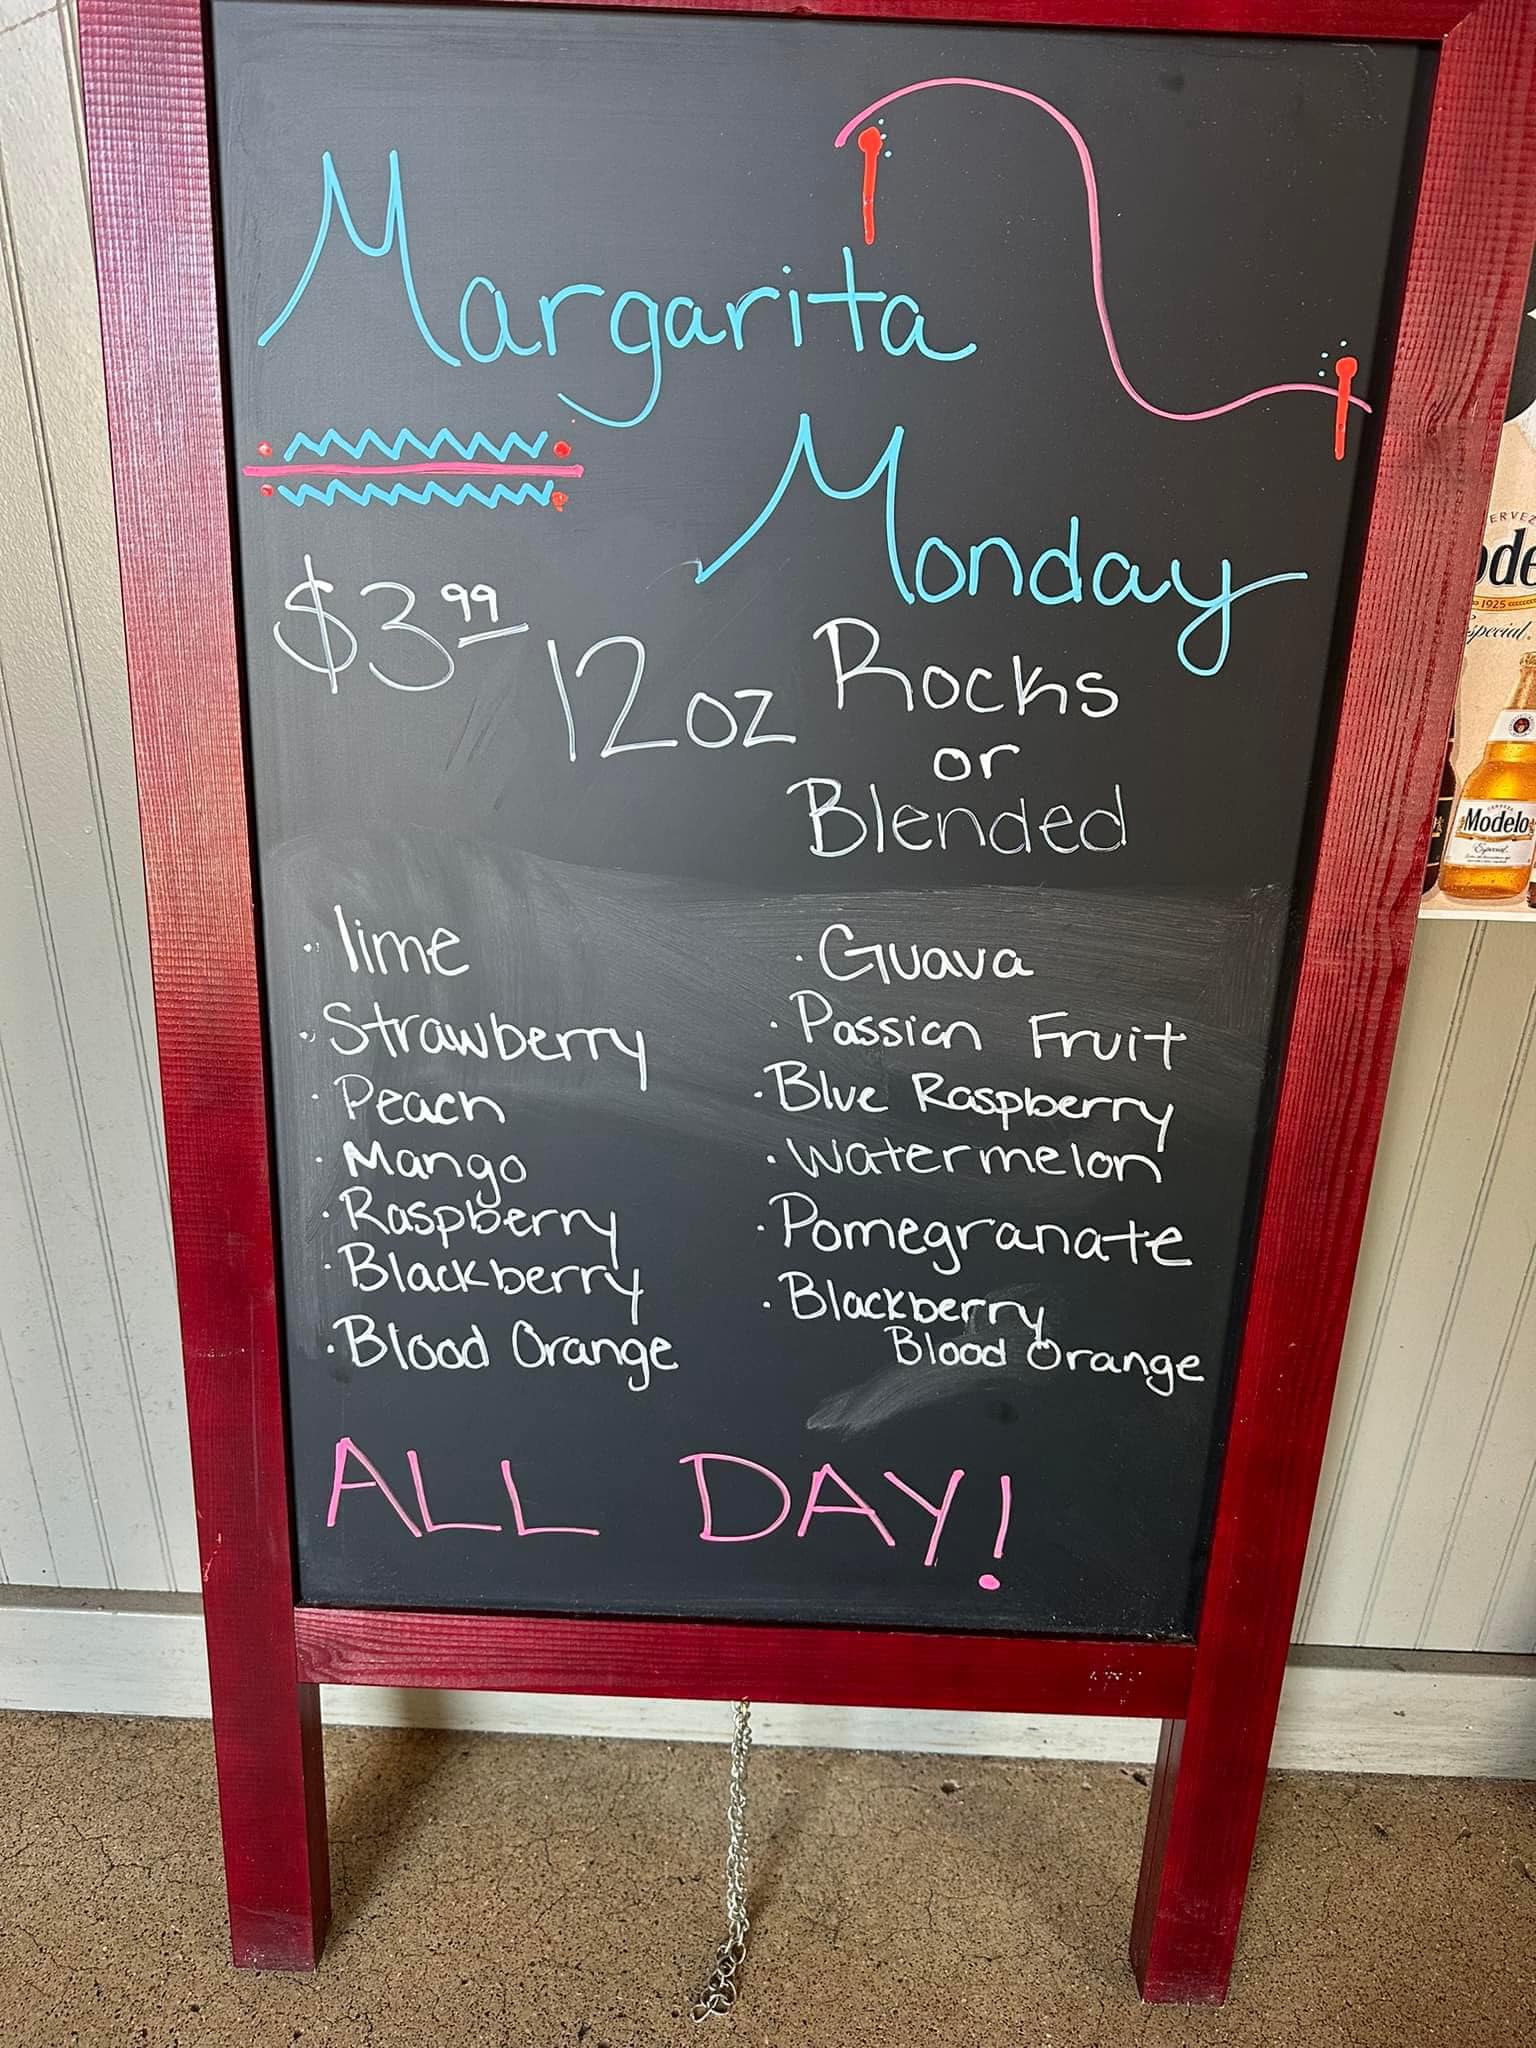 Margarita
Monday
$3.99 12oz Rocks
or
Blended
· lime
· Strawberry
· Peach
· Mango
· Raspberry
· Blackberry
· Blood Orange
· Guava
· Passion Fruit
· Blue Raspberry
· Watermelon
· Pomegranate
· Blackberry
Blood Orange
ALL DAY!
1925
Modelo
Especial